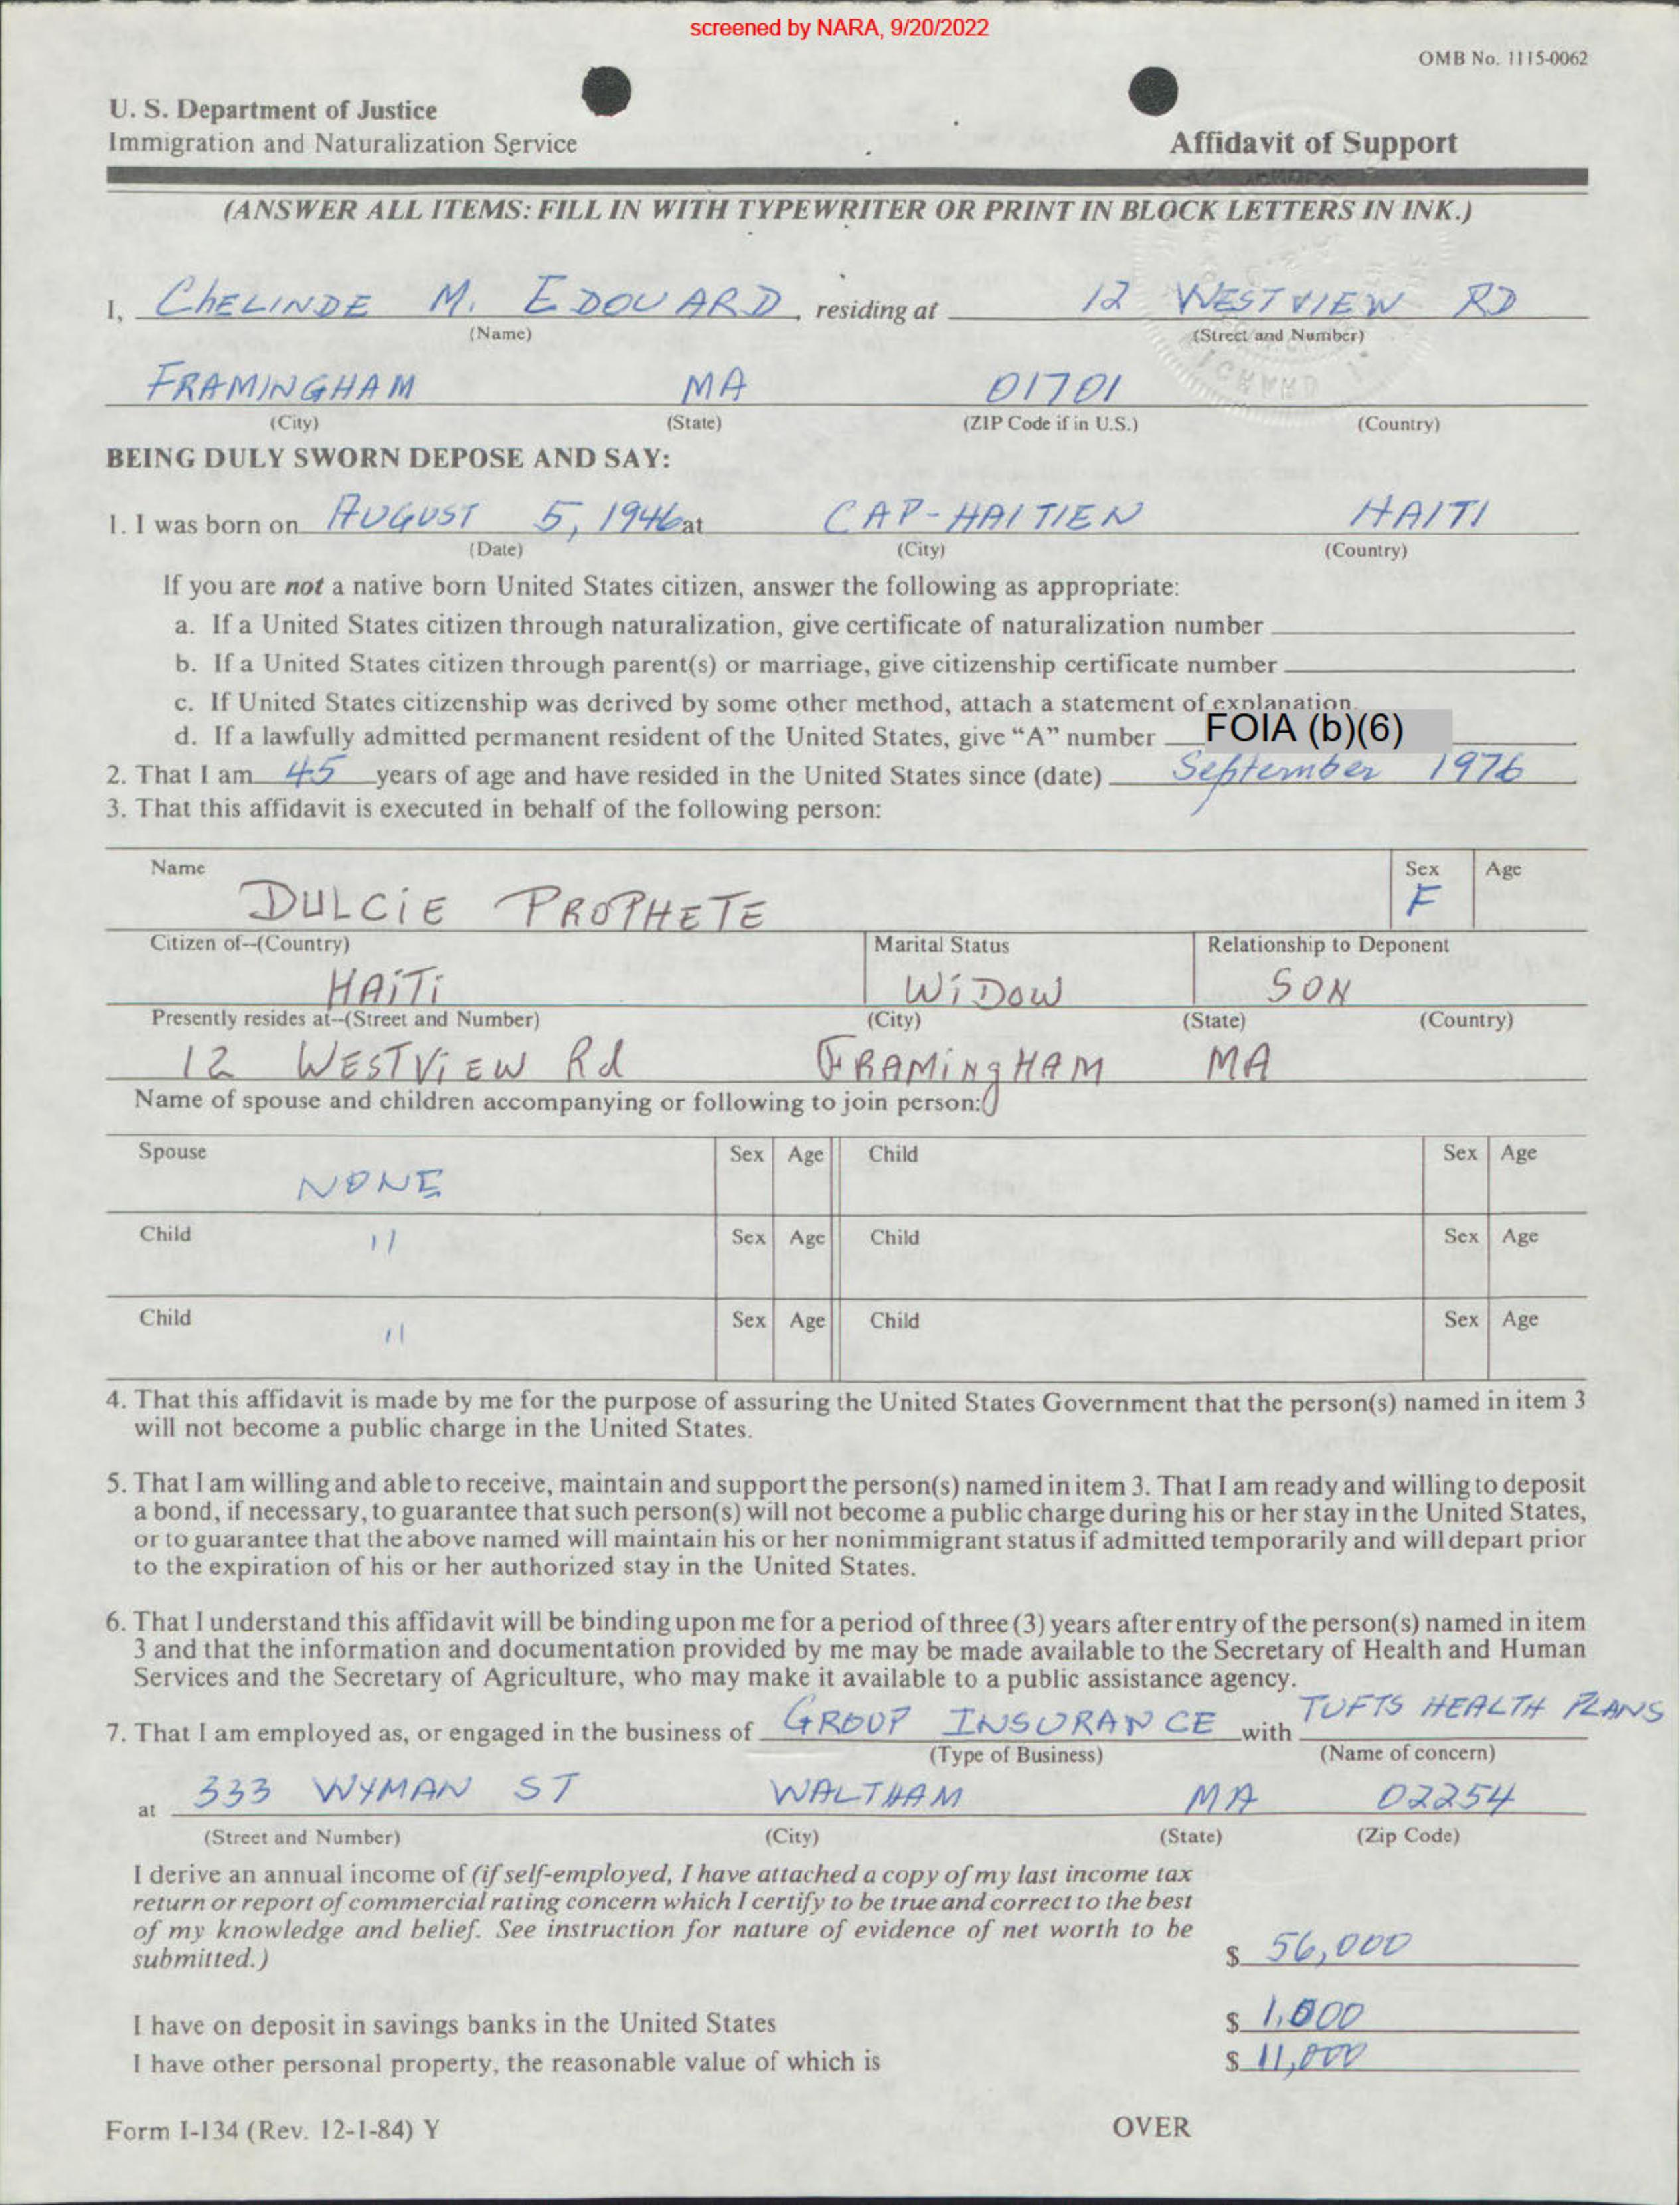 screened by NARA, 9/20/2022
OMB No. 1115-0062
U. S. Department of Justice
Immigration and Naturalization Service
Affidavit of Support
(ANSWER ALL ITEMS: FILL IN WITH TYPEWRITER OR PRINT IN BLOCK LETTERS IN INK.)
I, ChELINDE M. EDOUARD, residing at 12 WESTVIEW RD
(Name) (Street and Number)
FRAMINGHAM MA 01701
(City) (State) (ZIP Code if in U.S.) (Country)
BEING DULY SWORN DEPOSE AND SAY:
1. I was born on AUGUST 5, 1946 at CAP-HAITIEN HAITI
(Date) (City) (Country)
If you are not a native born United States citizen, answer the following as appropriate:
a. If a United States citizen through naturalization, give certificate of naturalization number
b. If a United States citizen through parent(s) or marriage, give citizenship certificate number
c. If United States citizenship was derived by some other method, attach a statement of explanation.
d. If a lawfully admitted permanent resident of the United States, give “A” number FOIA (b)(6)
2. That I am 45 years of age and have resided in the United States since (date) September 1976
3. That this affidavit is executed in behalf of the following person:
Name Sex Age
DULCiE PROPHETE F
Citizen of--(Country) Marital Status Relationship to Deponent
HAiTi WiDOW SON
Presently resides at--(Street and Number) (City) (State) (Country)
12 WESTViEW Rd FRAMiNgHAM MA
Name of spouse and children accompanying or following to join person:
Spouse Sex Age Child Sex Age
NONE
Child Sex Age Child Sex Age
11
Child Sex Age Child Sex Age
11
4. That this affidavit is made by me for the purpose of assuring the United States Government that the person(s) named in item 3
will not become a public charge in the United States.
5. That I am willing and able to receive, maintain and support the person(s) named in item 3. That I am ready and willing to deposit
a bond, if necessary, to guarantee that such person(s) will not become a public charge during his or her stay in the United States,
or to guarantee that the above named will maintain his or her nonimmigrant status if admitted temporarily and will depart prior
to the expiration of his or her authorized stay in the United States.
6. That I understand this affidavit will be binding upon me for a period of three (3) years after entry of the person(s) named in item
3 and that the information and documentation provided by me may be made available to the Secretary of Health and Human
Services and the Secretary of Agriculture, who may make it available to a public assistance agency.
7. That I am employed as, or engaged in the business of GROUP INSURANCE with TUFTS HEALTH PLANS
(Type of Business) (Name of concern)
at 333 WYMAN ST WALTHAM MA 02254
(Street and Number) (City) (State) (Zip Code)
I derive an annual income of (if self-employed, I have attached a copy of my last income tax
return or report of commercial rating concern which I certify to be true and correct to the best
of my knowledge and belief. See instruction for nature of evidence of net worth to be
submitted.) $ 56,000
I have on deposit in savings banks in the United States $ 1,000
I have other personal property, the reasonable value of which is $ 11,000
Form I-134 (Rev. 12-1-84) Y OVER